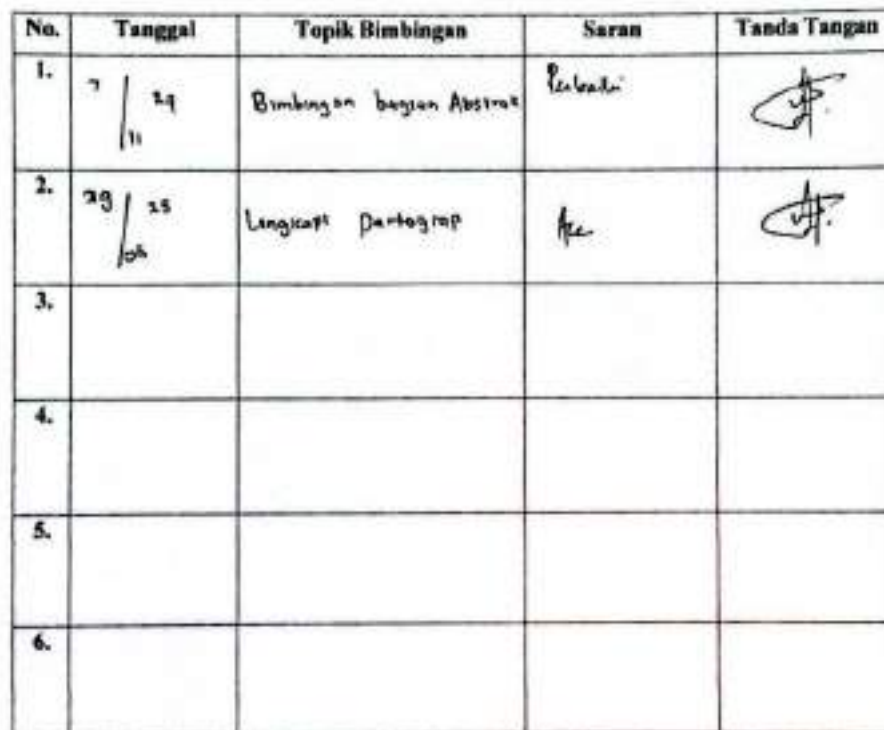 No. Tanggal Topik Bimbingan Saran Tanda Tangan
1. 7 / 11 24 Bimbingan bagian Abstrak Perbaiki
2. 29 / 05 25 Lengkapi partograp Acc
3.
4.
5.
6.